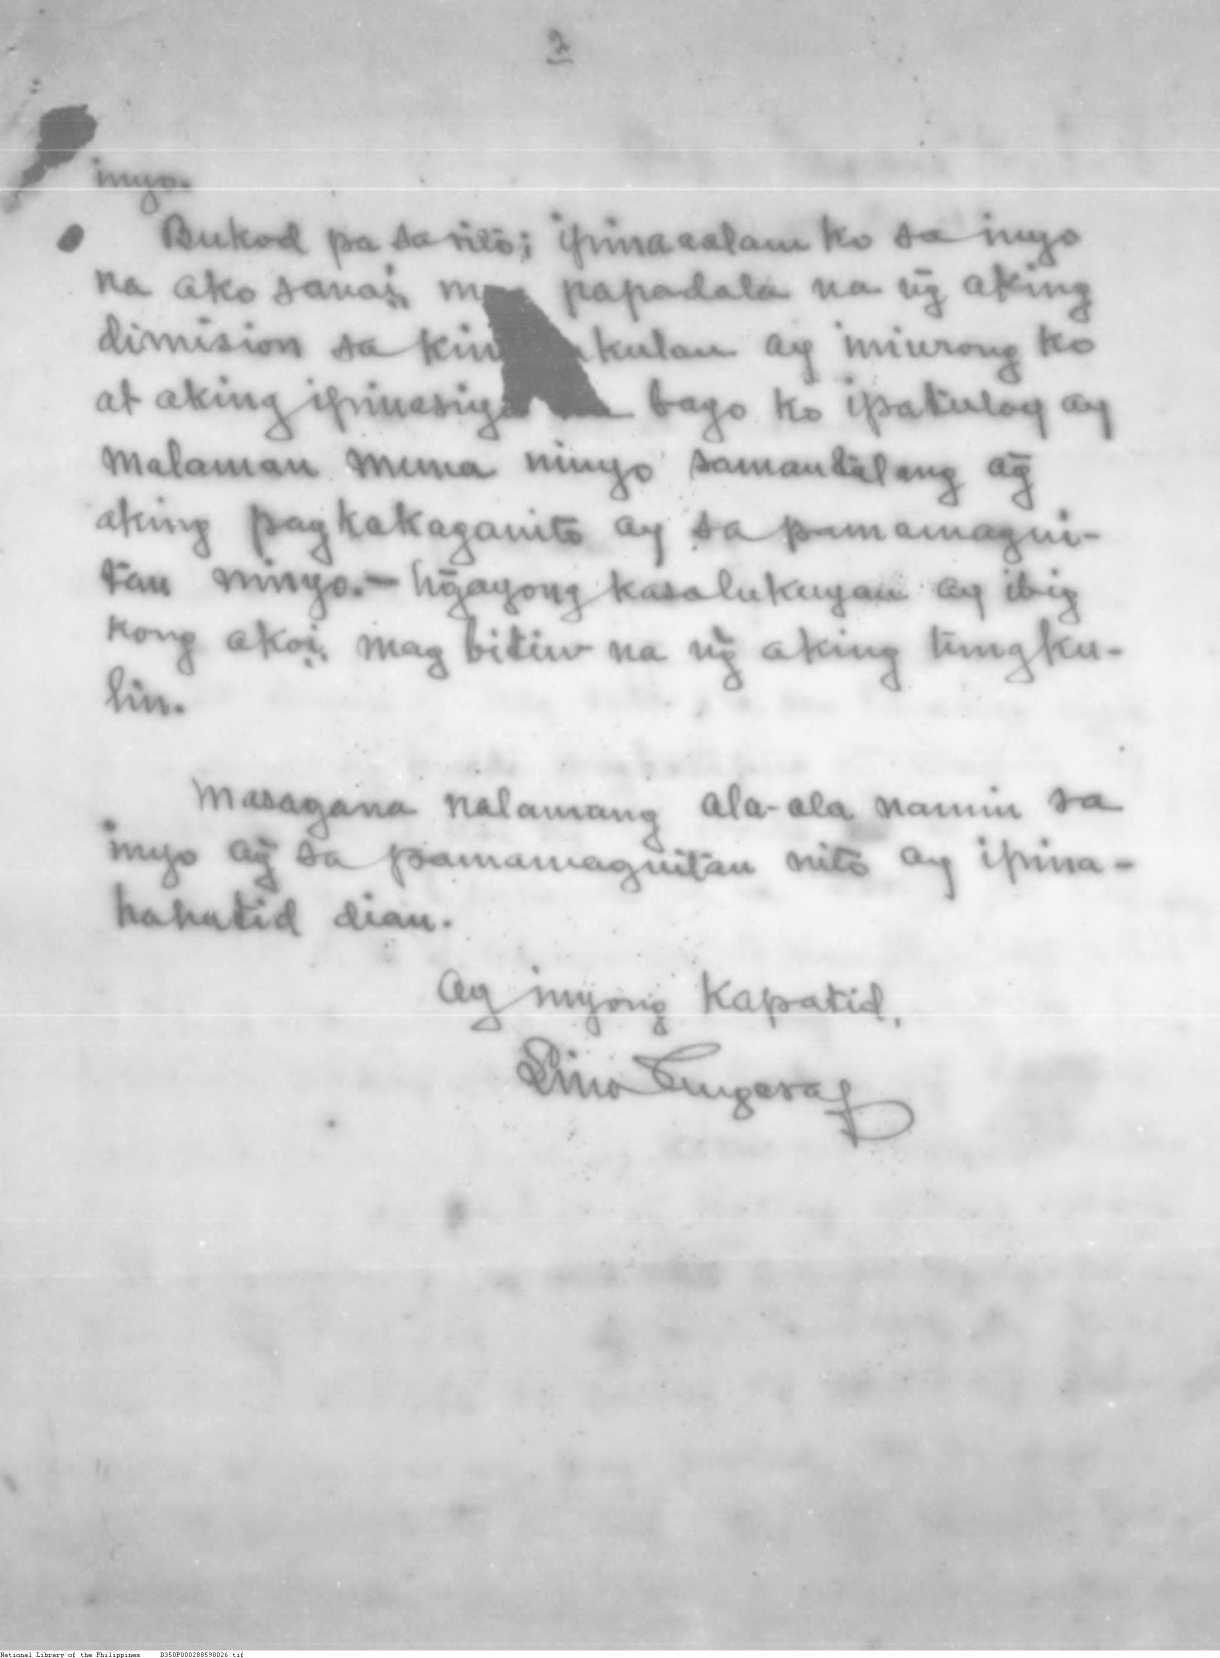 2
inyo.
Bukod pa sa rito; ipinaaalam ko sa inyo
na ako sanai, papadala na ng̃ aking
dimision sa ay iniurong ko
at aking bago ko ipatuloy ay
malaman muna ninyo samantalang ag̃
aking pagkakaganito ay sa pamamagui-
tan ninyo.— Ng̃ayong kasalukuyan ay ibig
kong akoi, mag bitiw na ng̃ aking tungku-
lin.
Masagana nalamang ala-ala namin sa
inyo ag̃ sa pamamaguitan nito ay ipina-
hahatid dian.
Ag inyong Kapatid,
National Library of the Philippines D350P000288598026.tif